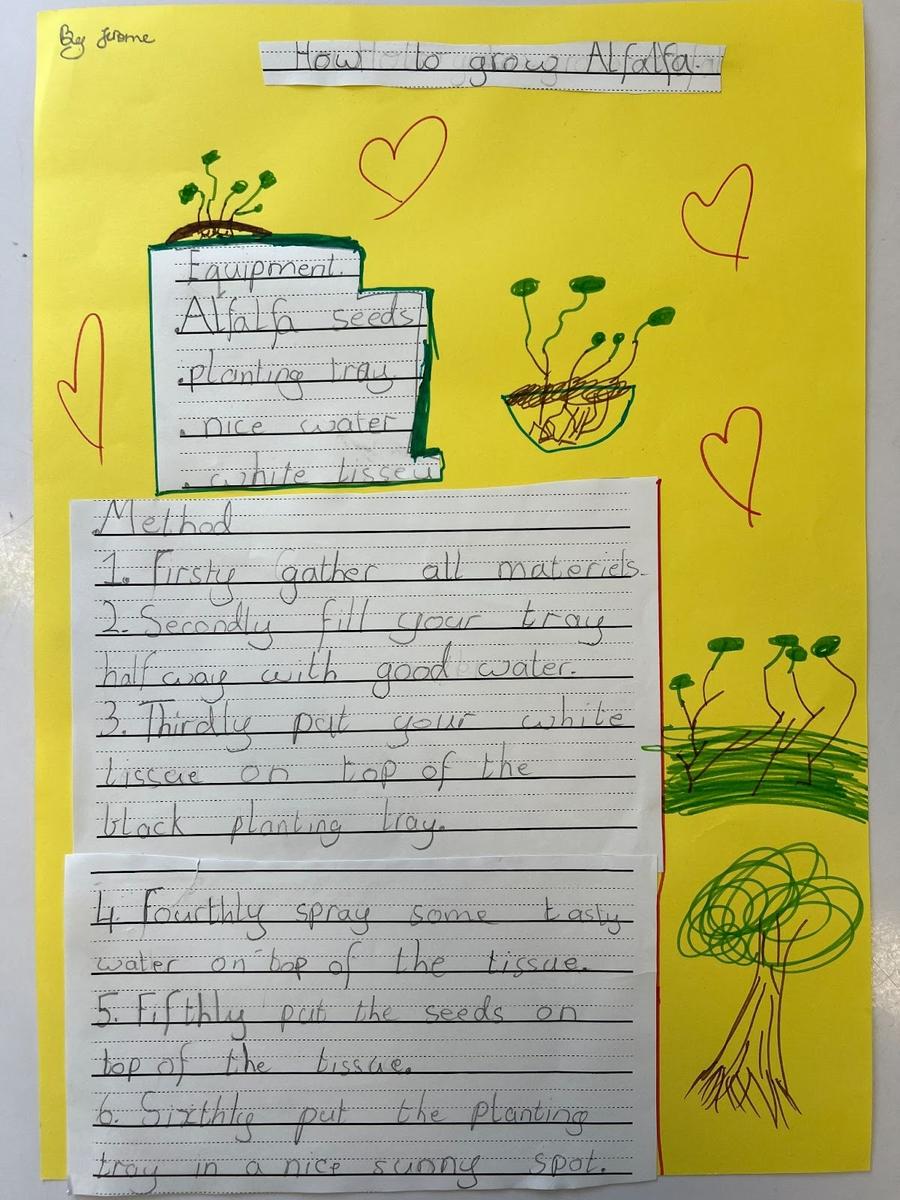 By Jerome
How to grow Alfalfa.
Equipment.
. Alfalfa seeds
. planting tray
. nice water
. white tisseu
Method
1. Firsty gather all materiels.
2. Secondly fill your tray
half way with good water.
3. Thirdly put your white
tissue on top of the
black planting tray.
4. Fourthly spray some tasty
water on top of the tissue.
5. Fifthly put the seeds on
top of the tissue.
6. Sixthly put the planting
tray in a nice sunny spot.